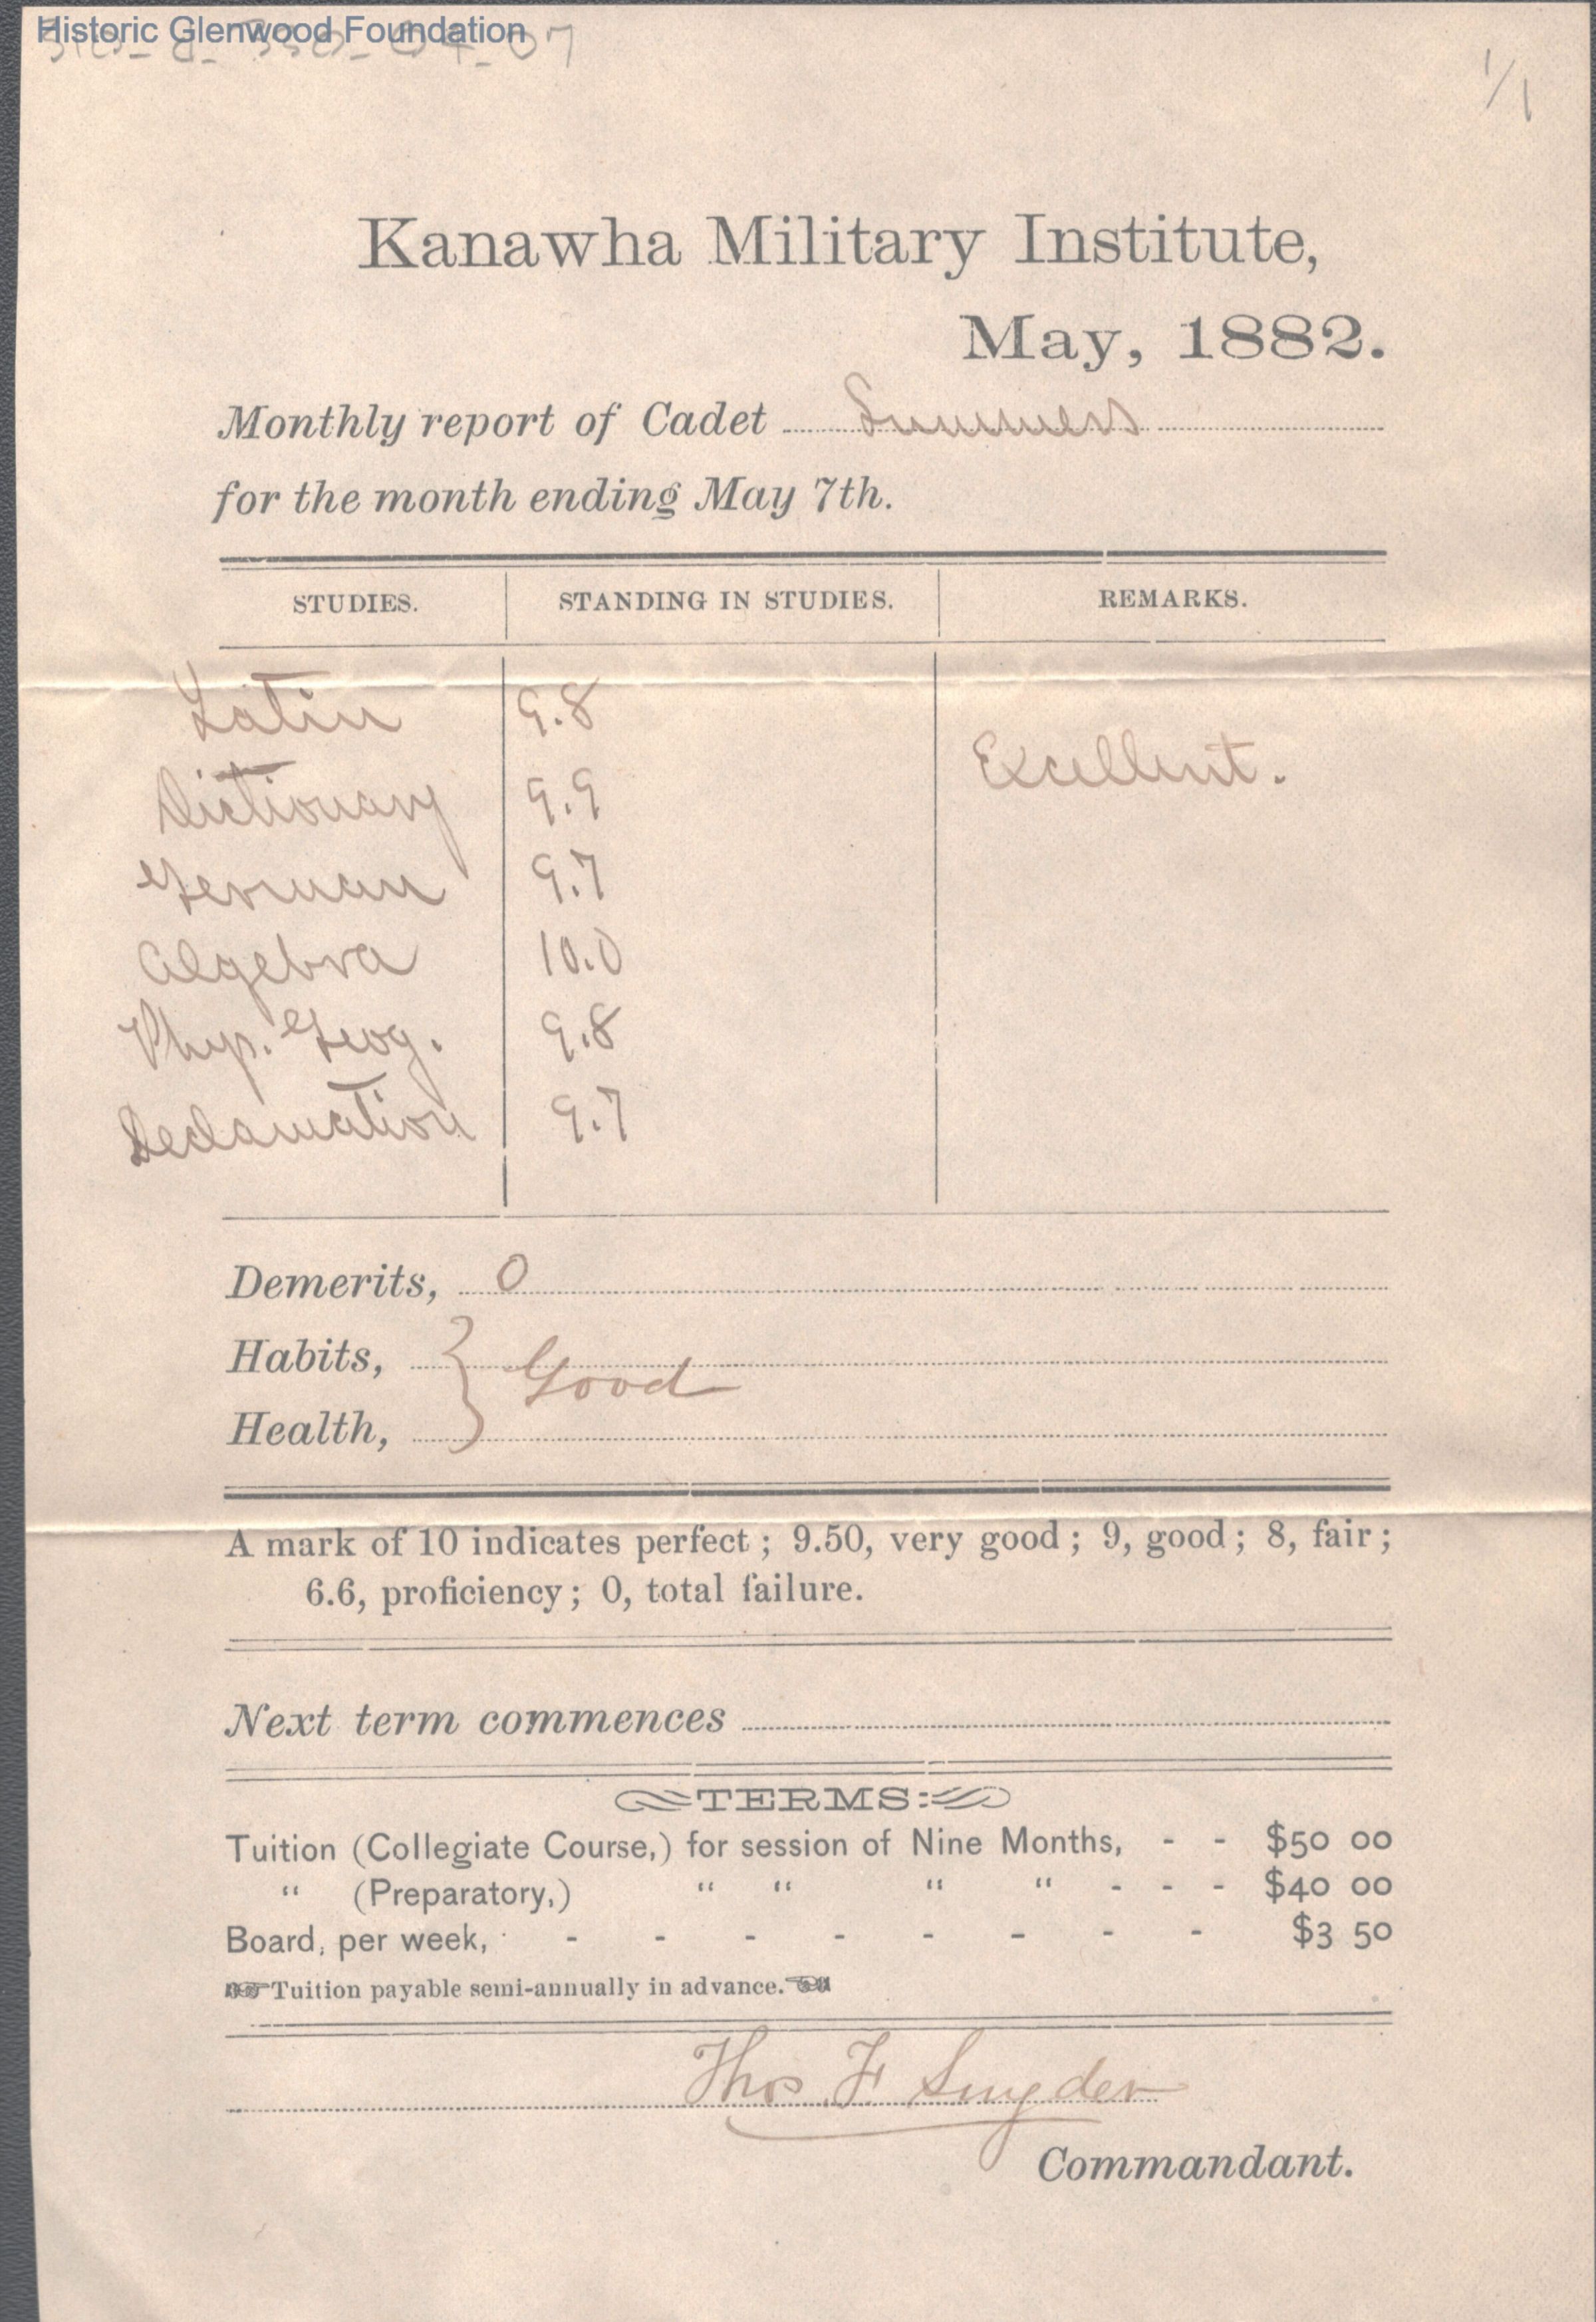 Historic Glenwood Foundation
1/1
Kanawha Military Institute,
May, 1882.
Monthly report of Cadet Summers
for the month ending May 7th.
STUDIES. STANDING IN STUDIES. REMARKS.
Latin 9.8
Excellent.
Dictionary 9.9
German 9.7
Algebra 10.0
Phys. Geog. 9.8
Declamation 9.7
Demerits, 0
Habits, } Good
Health,
A mark of 10 indicates perfect; 9.50, very good; 9, good; 8, fair;
6.6, proficiency; 0, total failure.
Next term commences
TERMS:
Tuition (Collegiate Course,) for session of Nine Months, - - $50 00
" (Preparatory,) " " " " - - - $40 00
Board, per week, - - - - - - - - $3 50
☞Tuition payable semi-annually in advance.☜
Thos. F. Snyder
Commandant.